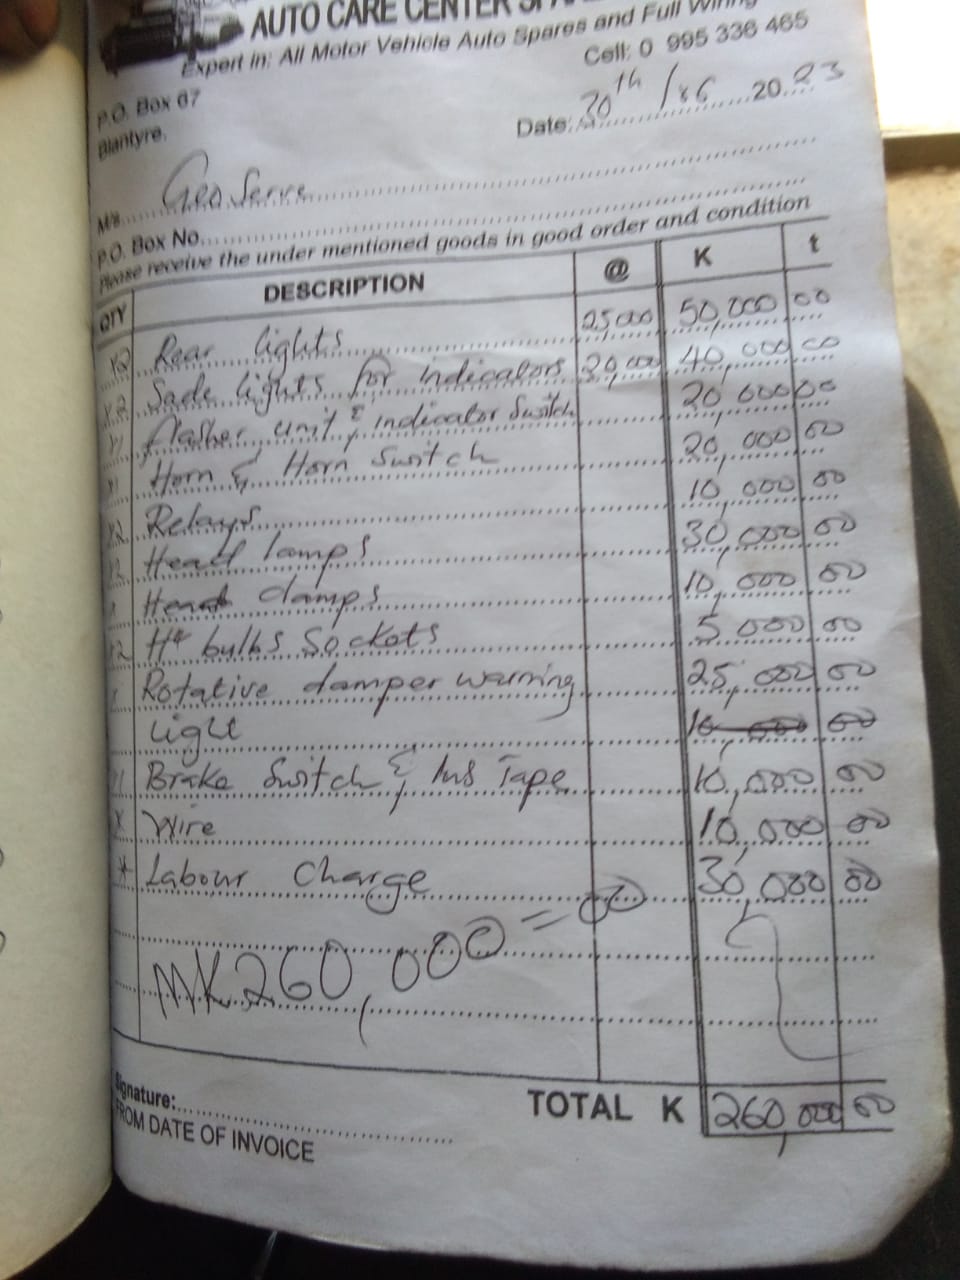 AUTO CARE CENTER
Expert in: All Motor Vehicle Auto Spares and Full Wiring
Cell: 0 995 336 465
P.O. Box 67
Blantyre.
Date: 20th / 06 2023
M/s Geo Serve
P.O. Box No.
Please receive the under mentioned goods in good order and condition
QTY DESCRIPTION @ K t
x2 Rear lights 25,000 50,000 00
x2 Sade lights for indicators 20,000 40,000 00
x1 flasher unit & indicator Switch 20,000 00
x1 Horn & Horn Switch 20,000 00
x2 Relays 10,000 00
x2 Head lamps 30,000 00
clamps 10,000 00
x2 H4 bulbs Sockets 5,000 00
Rotative damper warning 25,000 00
light 10,000 00
x1 Brake Switch & Ins Tape 10,000 00
x Wire 10,000 00
* Labour Charge 30,000 00
MK260,000=00
TOTAL K 260,000 00
Signature:
FROM DATE OF INVOICE